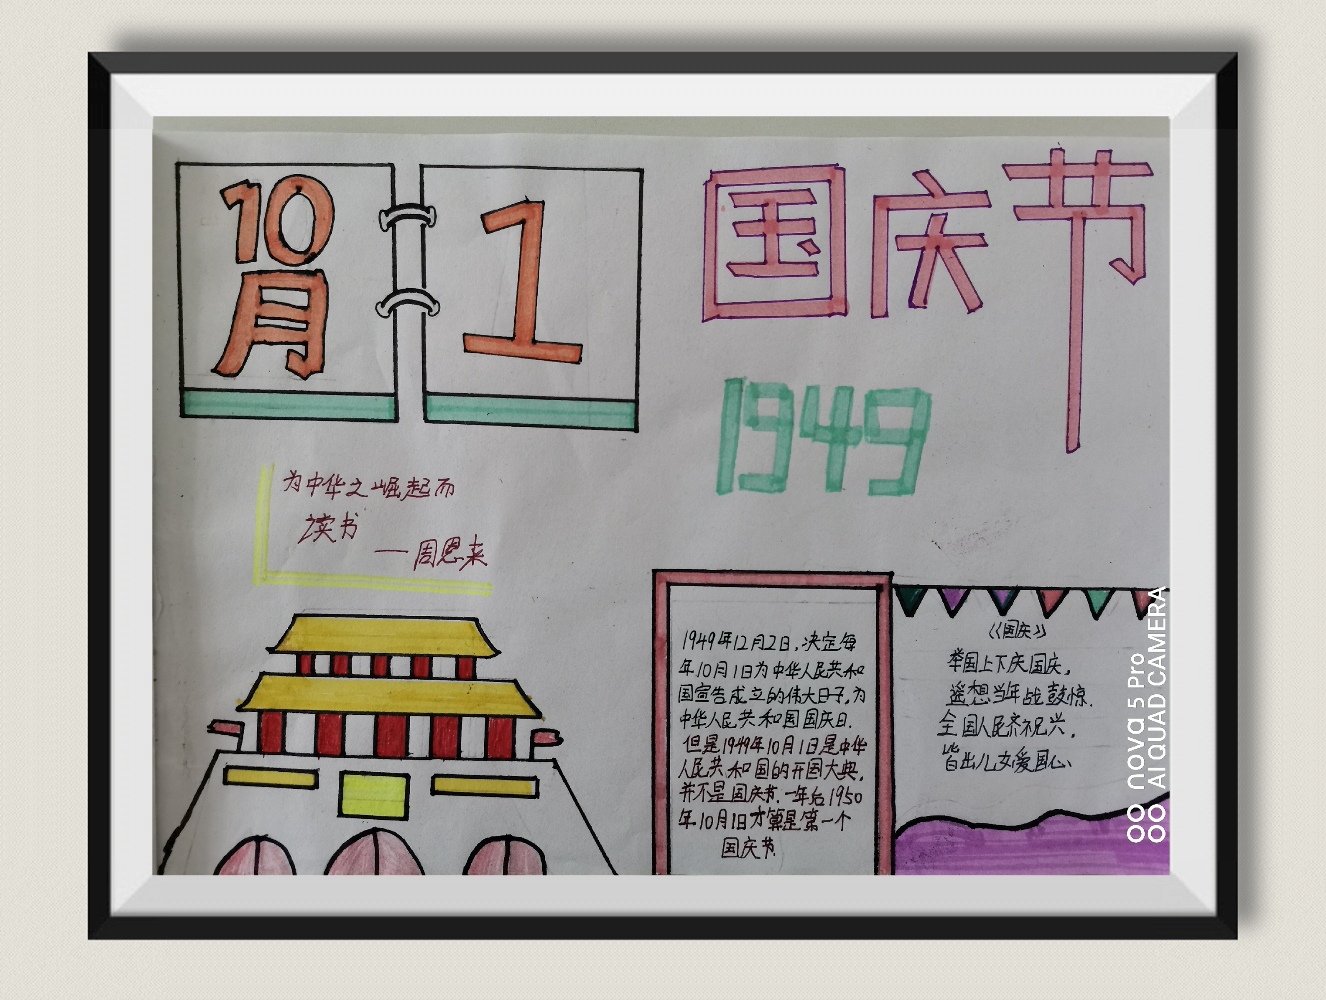 10
月
1
国庆节
1949
为中华之崛起而
读书
——周恩来
1949年12月2日,决定每
年10月1日为中华人民共和
国宣告成立的伟大日子,为
中华人民共和国国庆日.
但是1949年10月1日是中华
人民共和国的开国大典,
并不是国庆节.一年后1950
年10月1日才算是第一个
国庆节.
《国庆》
举国上下庆国庆,
遥想当年战鼓惊.
全国人民齐祝兴,
皆出儿女爱国心、
nova 5 Pro
AI QUAD CAMERA